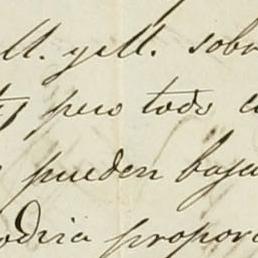 ll. y ll. sobr
pero todo c
pueden baja
odria propor